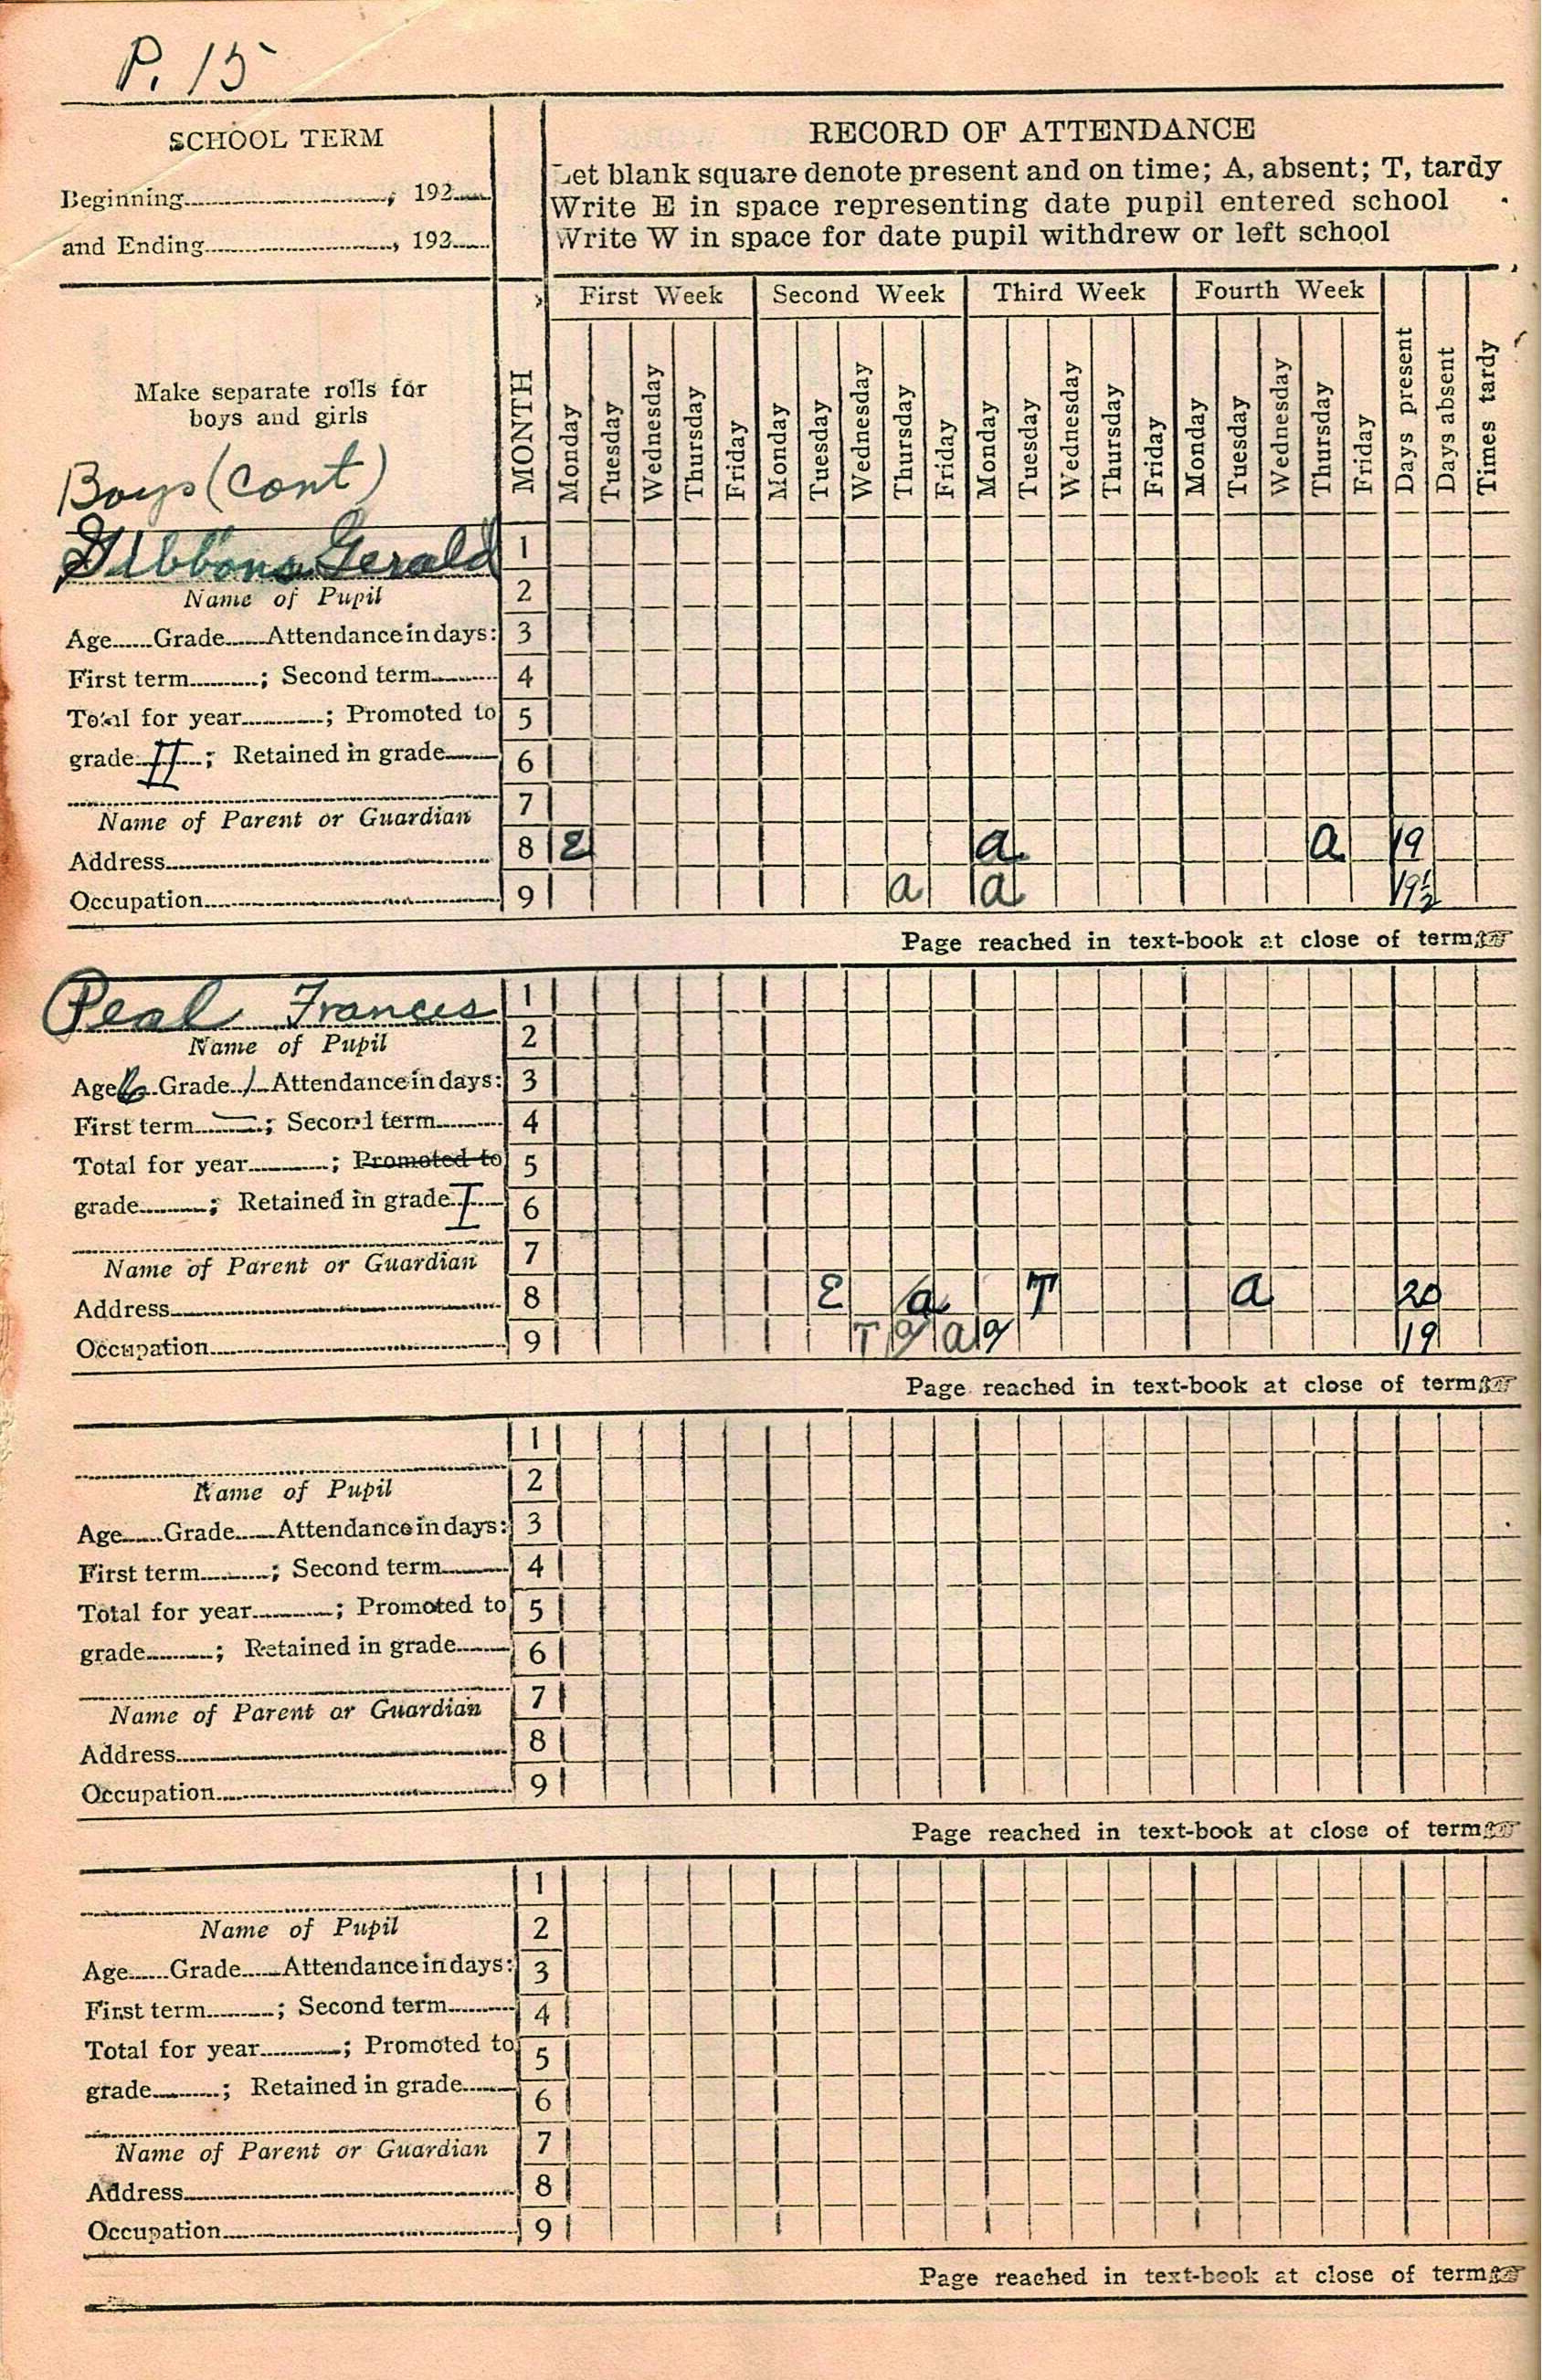 P. 15
SCHOOL TERM
Beginning , 192
and Ending , 192
RECORD OF ATTENDANCE
Let blank square denote present and on time; A, absent; T, tardy
Write E in space representing date pupil entered school
Write W in space for date pupil withdrew or left school
Make separate rolls for
boys and girls
Boys (cont)
MONTH
First Week Second Week Third Week Fourth Week
Monday Tuesday Wednesday Thursday Friday Monday Tuesday Wednesday Thursday Friday Monday Tuesday Wednesday Thursday Friday Monday Tuesday Wednesday Thursday Friday Days present Days absent Times tardy
Gibbons Gerald 1
Name of Pupil 2
Age Grade Attendance in days: 3
First term ; Second term 4
Total for year ; Promoted to 5
grade II ; Retained in grade 6
7
Name of Parent or Guardian
Address 8 E a a 19
Occupation 9 a a 19½
Page reached in text-book at close of term
Peal Frances 1
Name of Pupil 2
Age 6 Grade 1 Attendance in days: 3
First term — ; Second term 4
Total for year ; Promoted to 5
grade ; Retained in grade I 6
7
Name of Parent or Guardian
Address 8 E a T a 20
Occupation 9 T a a a 19
Page reached in text-book at close of term
1
Name of Pupil 2
Age Grade Attendance in days: 3
First term ; Second term 4
Total for year ; Promoted to 5
grade ; Retained in grade 6
7
Name of Parent or Guardian
Address 8
Occupation 9
Page reached in text-book at close of term
1
Name of Pupil 2
Age Grade Attendance in days: 3
First term ; Second term 4
Total for year ; Promoted to 5
grade ; Retained in grade 6
7
Name of Parent or Guardian
Address 8
Occupation 9
Page reached in text-book at close of term